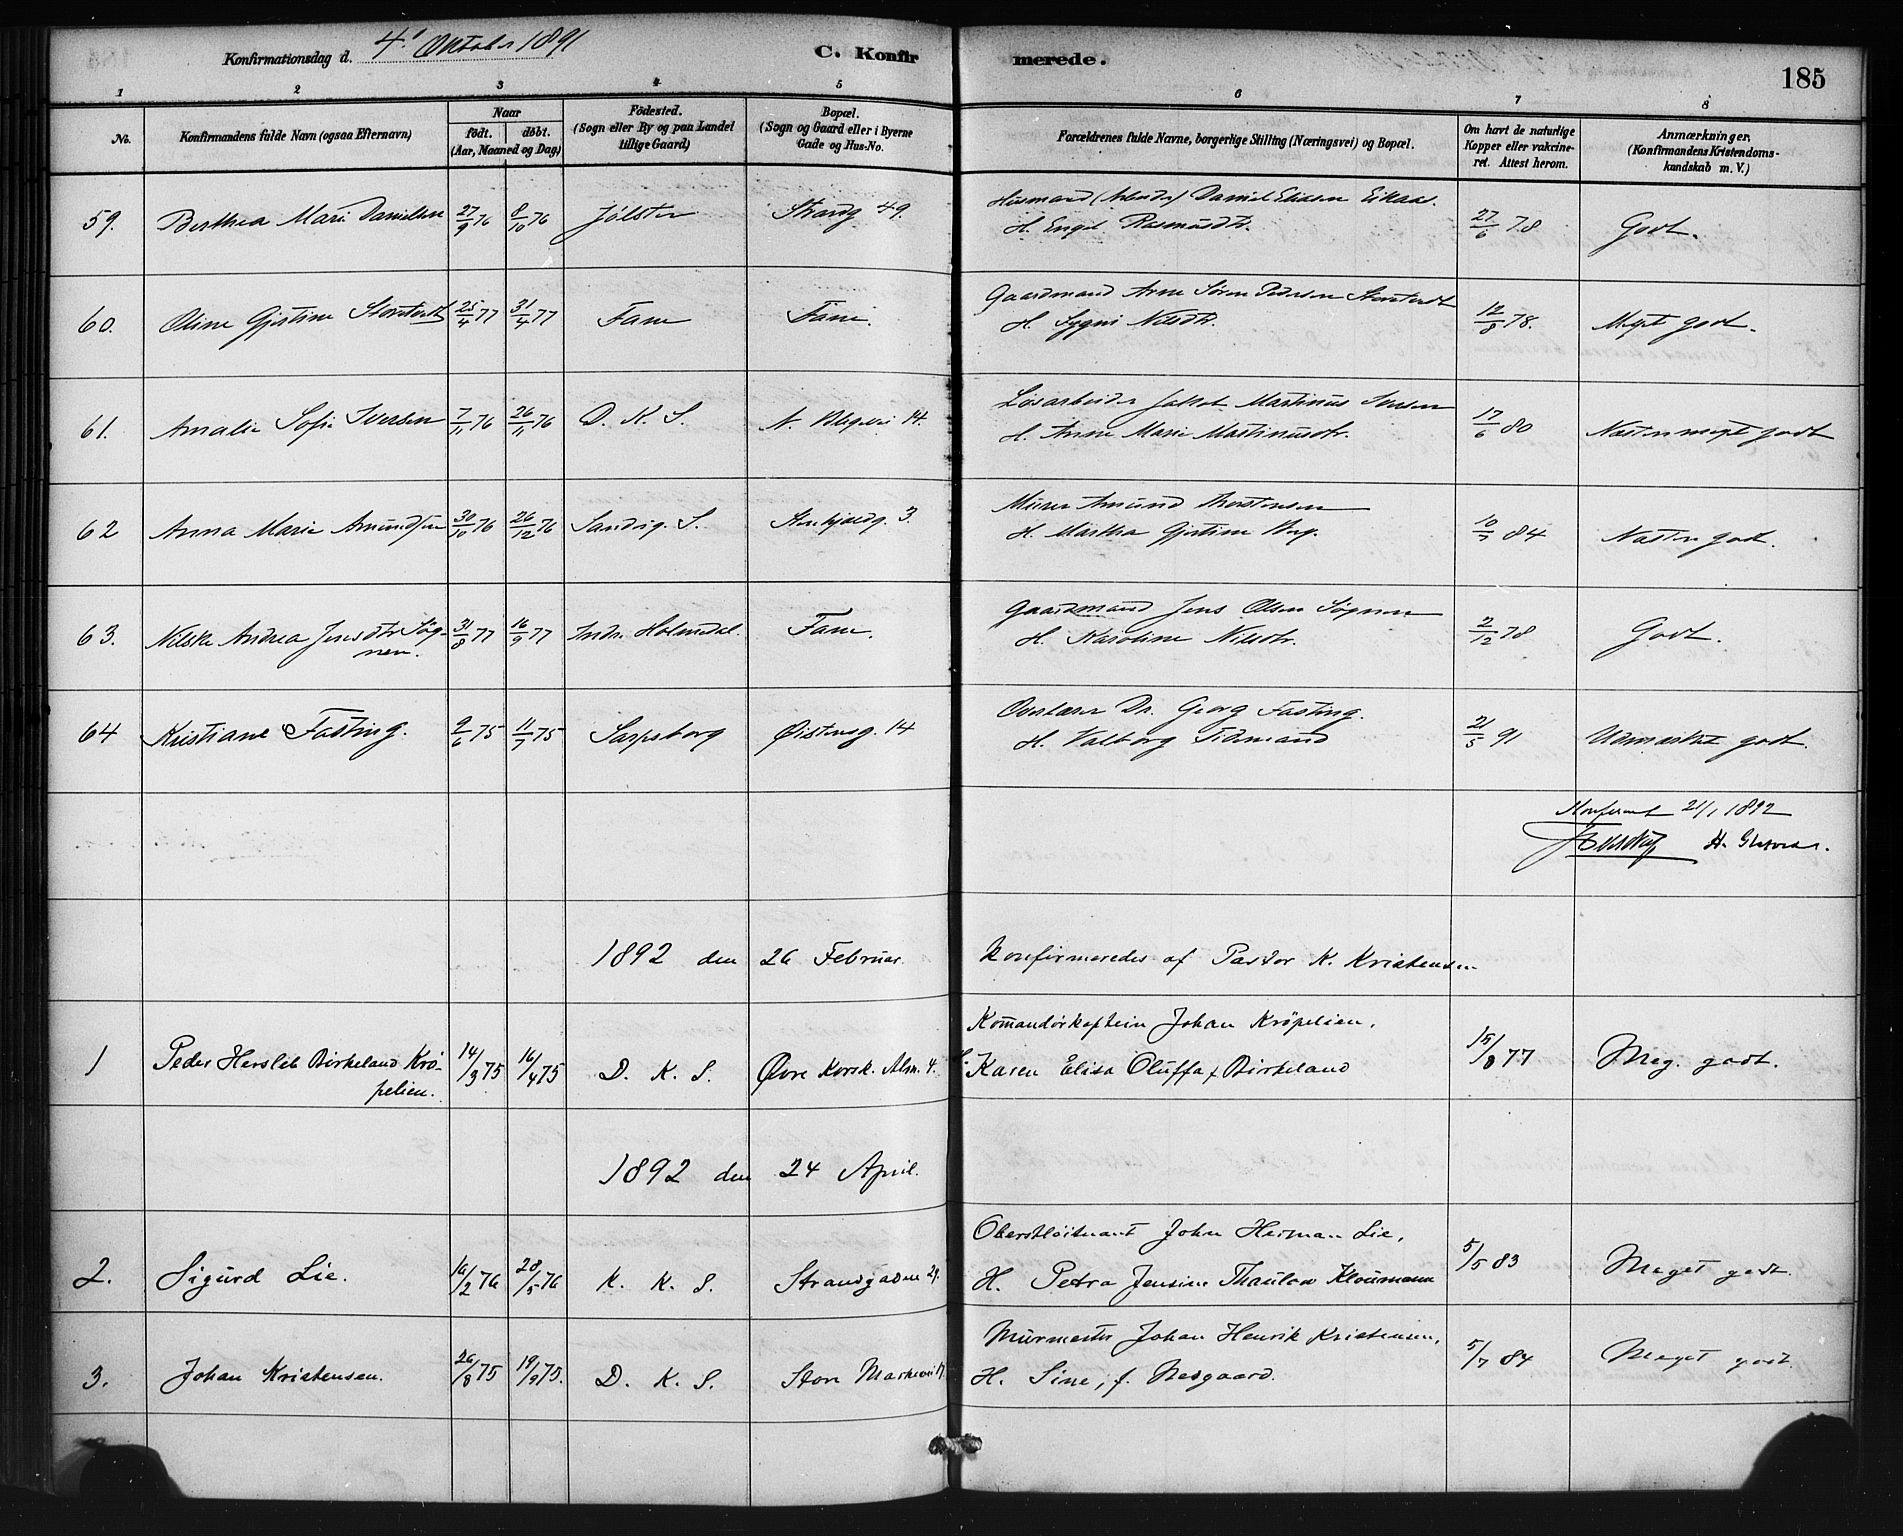 Konfirmationsdag d. 4' Oktober 1891
C. Konfirmerede.
185
1 2 3 4 5 6 7 8
No.
Konfirmandens fulde Navn (ogsaa Efternavn)
Naar
født. døbt.
(Aar, Maaned og Dag)
Fødested.
(Sogn eller By og paa Landet
tillige Gaard)
Bopæl.
(Sogn og Gaard eller i Byerne
Gade og Hus-No.
Forældrenes fulde Navne, borgerlige Stilling (Næringsvei) og Bopæl.
Om havt de naturlige
Kopper eller vakcine-
ret. Attest herom.
Anmærkninger,
(Konfirmandens Kristendoms-
kundskab m. V.)
59. Berthea Marie Danielsen 27/9 76 8/10 76 Jølster Strandg 49. Daniel Eliasen Eikaas.
H. Engel Rasmusdtr. 27/6 78 Godt.
60. Oline Gjertine Storetvedt 25/4 77 31/4 77 Fane Fane. Gaardmand Arne Søren Pedersen Storetvedt
H. Sygni Nilsdtr. 12/8 78. Meget godt.
61. Amalie Sofie Iversen 7/11 76 26/11 76 D. K. S. N. Blegevei 14. Løsarbeider Jakob Martinus Iversen
H. Anne Marie Martinusdtr. 17/6 80 Næsten meget godt
62 Anna Marie Amundsen 30/10 76 26/12 76 Sandvig. S. 3. Murer Amund Thorstensen
H. Martha Gjertine 10/7 84 Næsten godt.
63. Nilska Andrea Jensdtr Søg-
nen. 31/8 77 16/9 77 Indr. Holmedal. Fane. Gaardmand Jens Olsen Søgnen
H. Karoline Nilsdtr. 2/12 78 Godt.
64 Kristiane Fasting. 9/6 75 11/7 75 Sarpsborg Østensg. 14 Overlærer Dr. Georg Fasting.
H. Valborg Tidemand 21/5 91 Udmærket godt.
Konfereret 21/1 1892
1892 den 26 Februar Konfirmeredes af Pastor K. Kristensen
1 Peder Hersleb Birkeland Krö-
pelien. 14/3 75 16/4 75 D. K. S. Øvre Korsk. Alm. 4. Komandörkaptein Johan Kröpelien,
H. Karen Elisa Oluffa f Birkeland 15/8 77 Meg. godt.
1892 den 24 April.
2. Sigurd Lie. 16/2 76 28/5 76 K. K. S. Strandgaden 29. Oberstløitnant John Herman Lie,
H. Petra Jensine Thaulow Kloumann 5/5 83 Meget godt.
3. Johan Kristensen. 26/8 75 19/9 75. D. K. S. Store Markevei Murmester Johan Henrik Kristensen,
H. Sine, f. Nesgaard. 5/7 84 Meget godt.